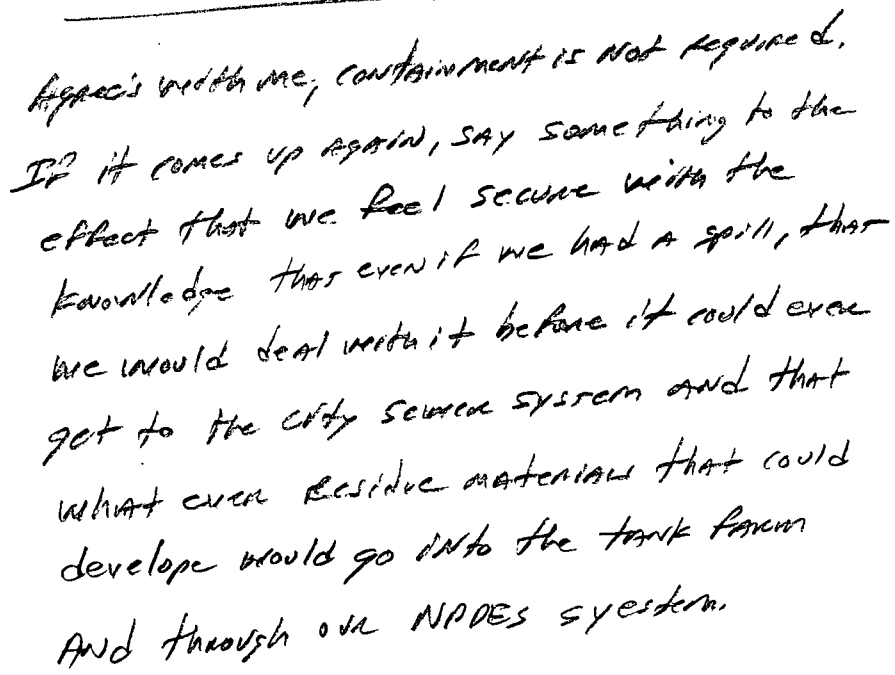 Agree's with me, containment is not required.
If it comes up again, say something to the
effect that we feel secure with the
knowledge that even if we had a spill, that
we would deal with it before it could ever
get to the city sewer system and that
what ever residue materials that could
develope would go into the tank farm
And through our NPDES syestem.